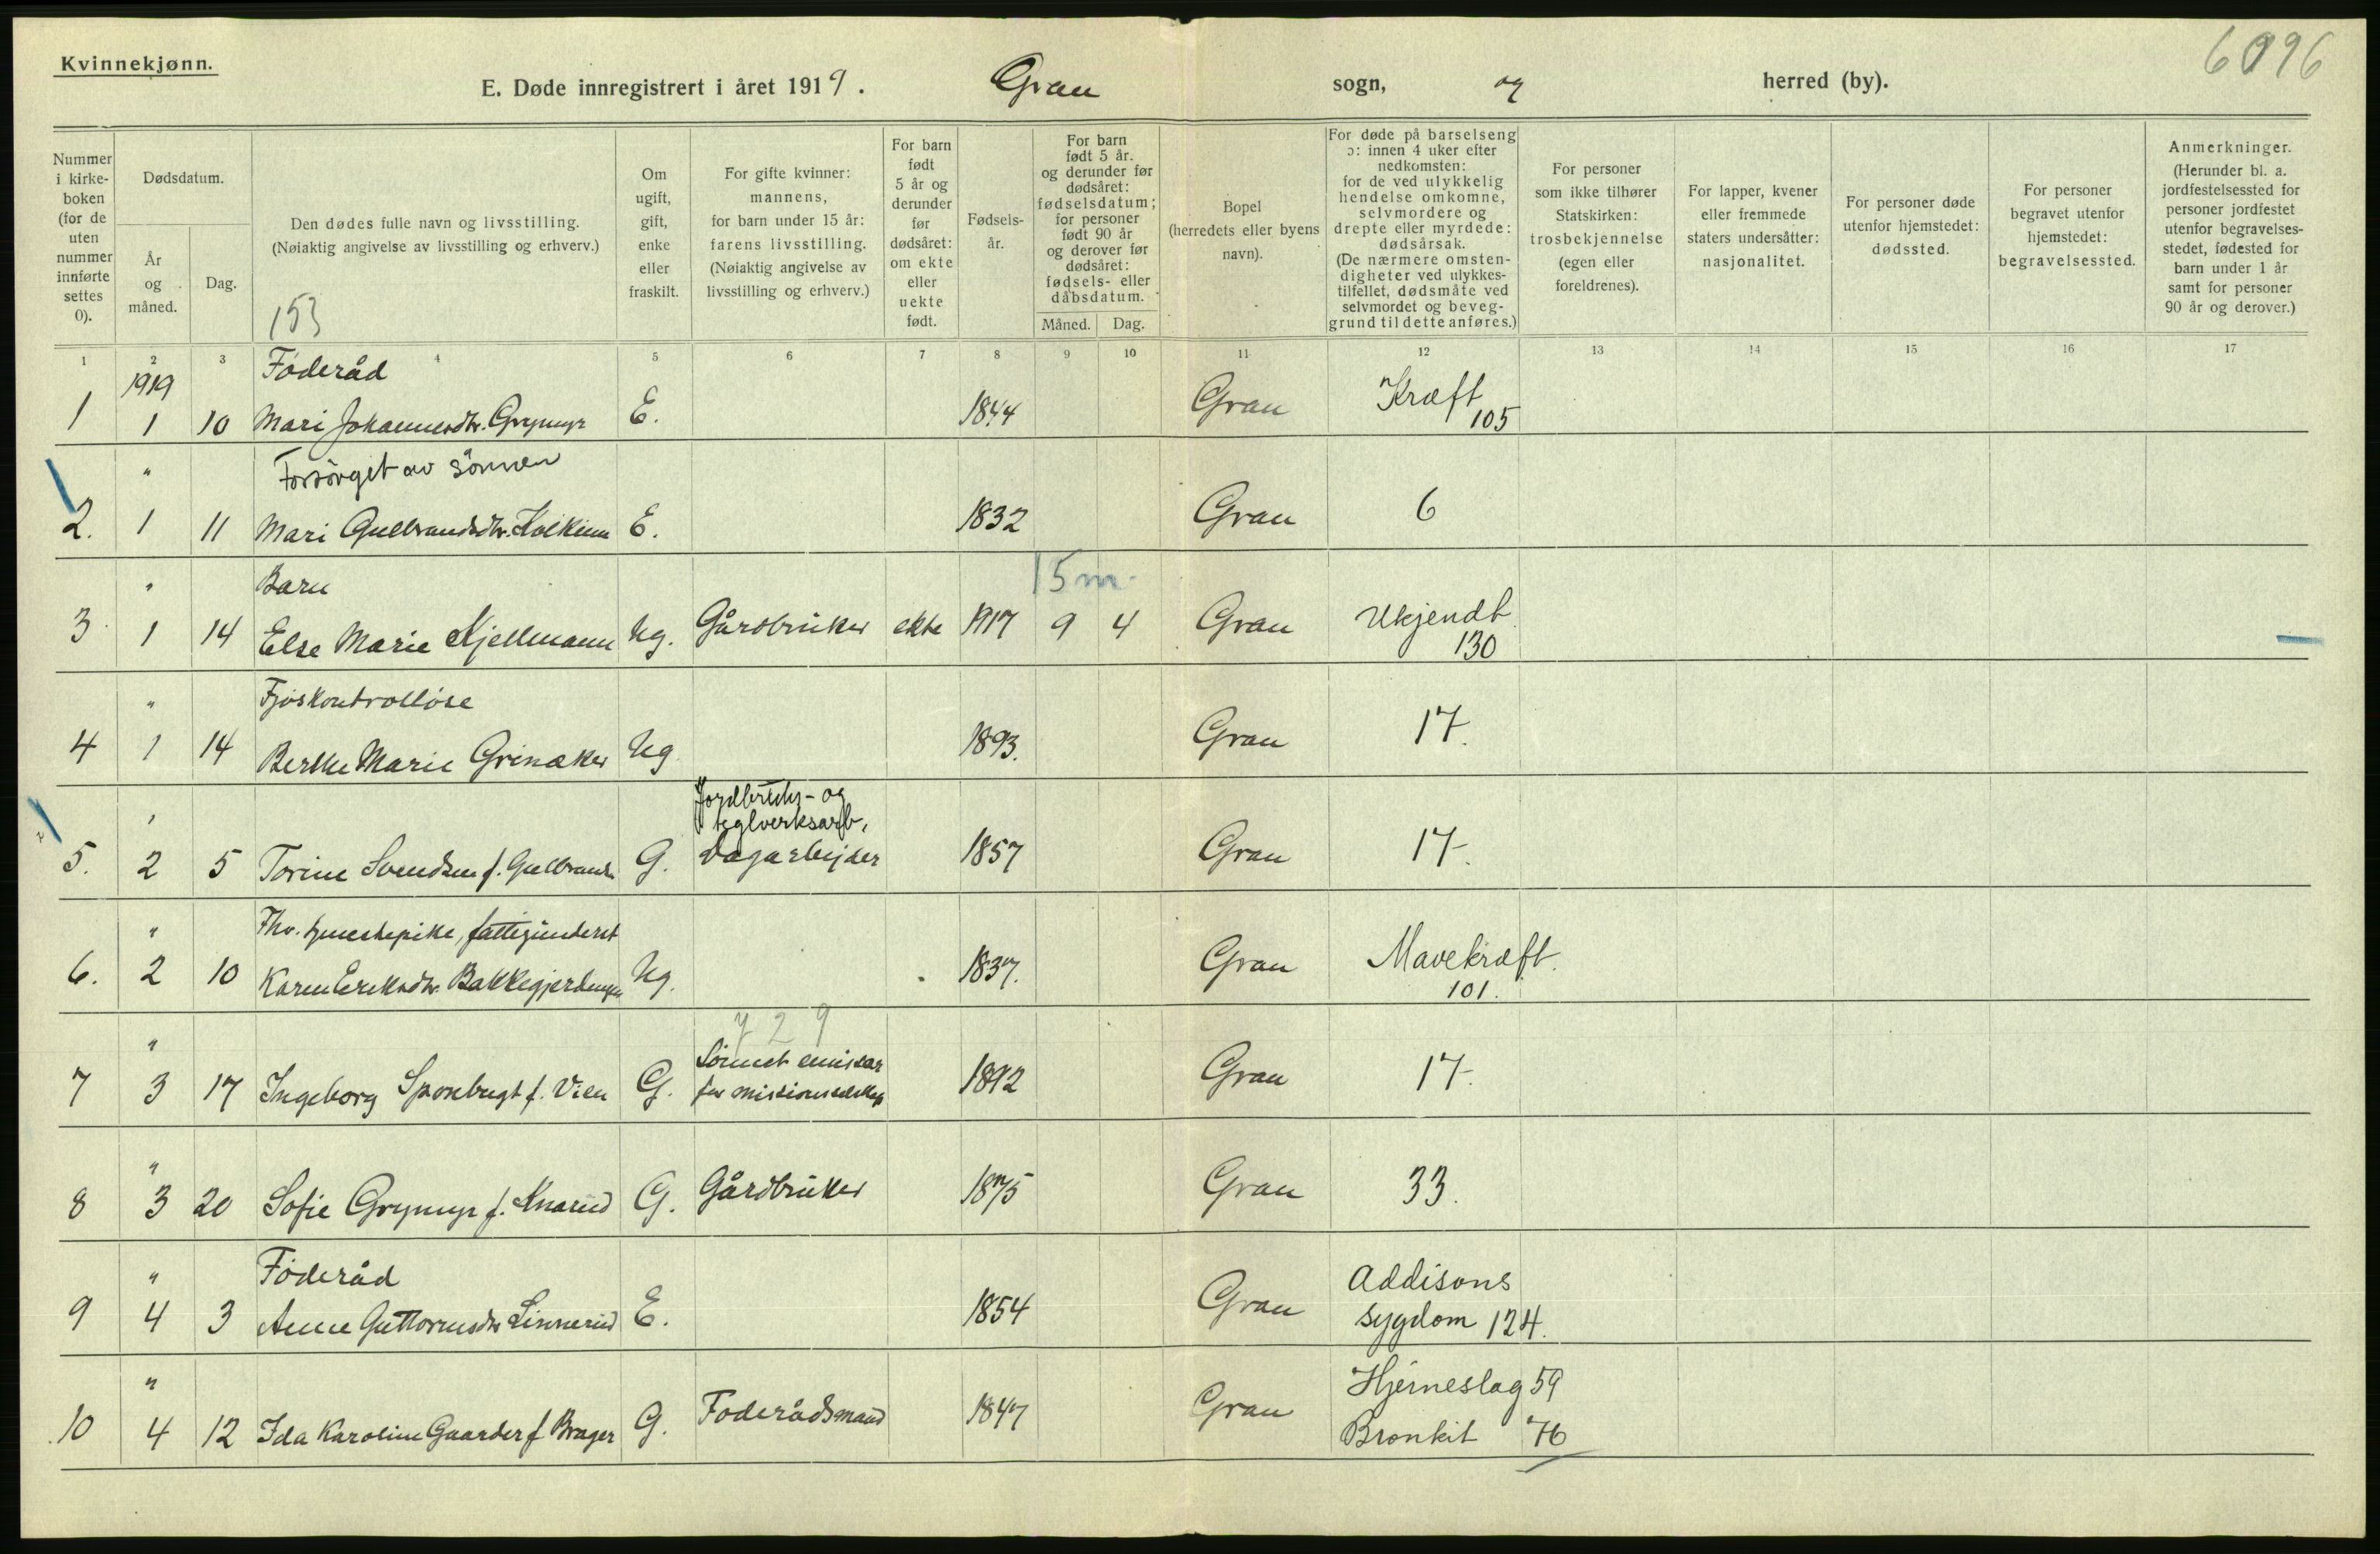 Kvinnekjønn.
6096
E. Døde innregistrert i året 1919. Gran sogn, og herred (by).
Nummer i kirkeboken (for de uten nummer innførte settes 0).
Dødsdatum.
År og måned.
Dag.
Den dødes fulle navn og livsstilling.
(Nøiaktig angivelse av livsstilling og erhverv.)
153
Om ugift, gift, enke eller fraskilt.
For gifte kvinner: mannens, for barn under 15 år: farens livsstilling. (Nøiaktig angivelse av livsstilling og erhverv.)
For barn født 5 år og derunder før dødsåret: om ekte eller uekte født.
Fødselsår.
For barn født 5 år. og derunder før dødsåret: fødselsdatum; for personer født 90 år og derover før dødsåret: fødsels- eller dåbsdatum.
Måned. Dag.
Bopel (herredets eller byens navn).
For døde på barselseng ɔ: innen 4 uker efter nedkomsten: for de ved ulykkelig hendelse omkomne, selvmordere og drepte eller myrdede: dødsårsak. (De nærmere omstendigheter ved ulykkestilfellet, dødsmåte ved selvmordet og beveggrund til dette anføres.)
For personer som ikke tilhører Statskirken: trosbekjennelse (egen eller foreldrenes).
For lapper, kvener eller fremmede staters undersåtter: nasjonalitet.
For personer døde utenfor hjemstedet: dødssted.
For personer begravet utenfor hjemstedet: begravelsessted.
Anmerkninger. (Herunder bl. a. jordfestelsessted for personer jordfestet utenfor begravelsesstedet, fødested for barn under 1 år samt for personer 90 år og derover.)
1 2 3 4 5 6 7 8 9 10 11 12 13 14 15 16 17
1919 Føderåd
1 1 10 Mari Johannesdtr. Grymyr E. 1844 Gran Kræft 105
" Forsörget av sönnen
2. 1 11 Mari Gulbrandsdtr. Kolkinn E. 1832 Gran 6
" Barn 15 m.
3 1 14 Else Marie Kjellmann Ug. Gårdbruker ekte 1917 9 4 Gran Ukjendt 130
" Fjøskontrolløse
4 1 14 Berthe Marie Grinaker Ug 1893. Gran 17.
" Jordbruks- og teglverksarb,
5. 2 5 Torine Svendsen f. Gulbrands. G. Dagarbejder 1857 Gran 17.
" Fhv. tjenestepike, fattigunderst
6. 2 10 Karen Eriksdtr. Bakkegjerdingen Ug. 1837. Gran Mavekræft. 101.
729
" Lönnet emissær
7 3 17 Ingeborg f. Vien G. for missionsselskap 1892 Gran 17.
"
8 3 20 Sofie Grymyr f. Knarud G. Gårdbruker 1875 Gran 33.
" Føderåd Addisons
9 4 3 Anne Guttormsdtr Linnerud E. 1854 Gran sygdom 124.
" Hjerneslag 59
10 4 12 Ida Karoline Gaarder f Brager G. Foderådsmand 1847 Gran Bronkit 76